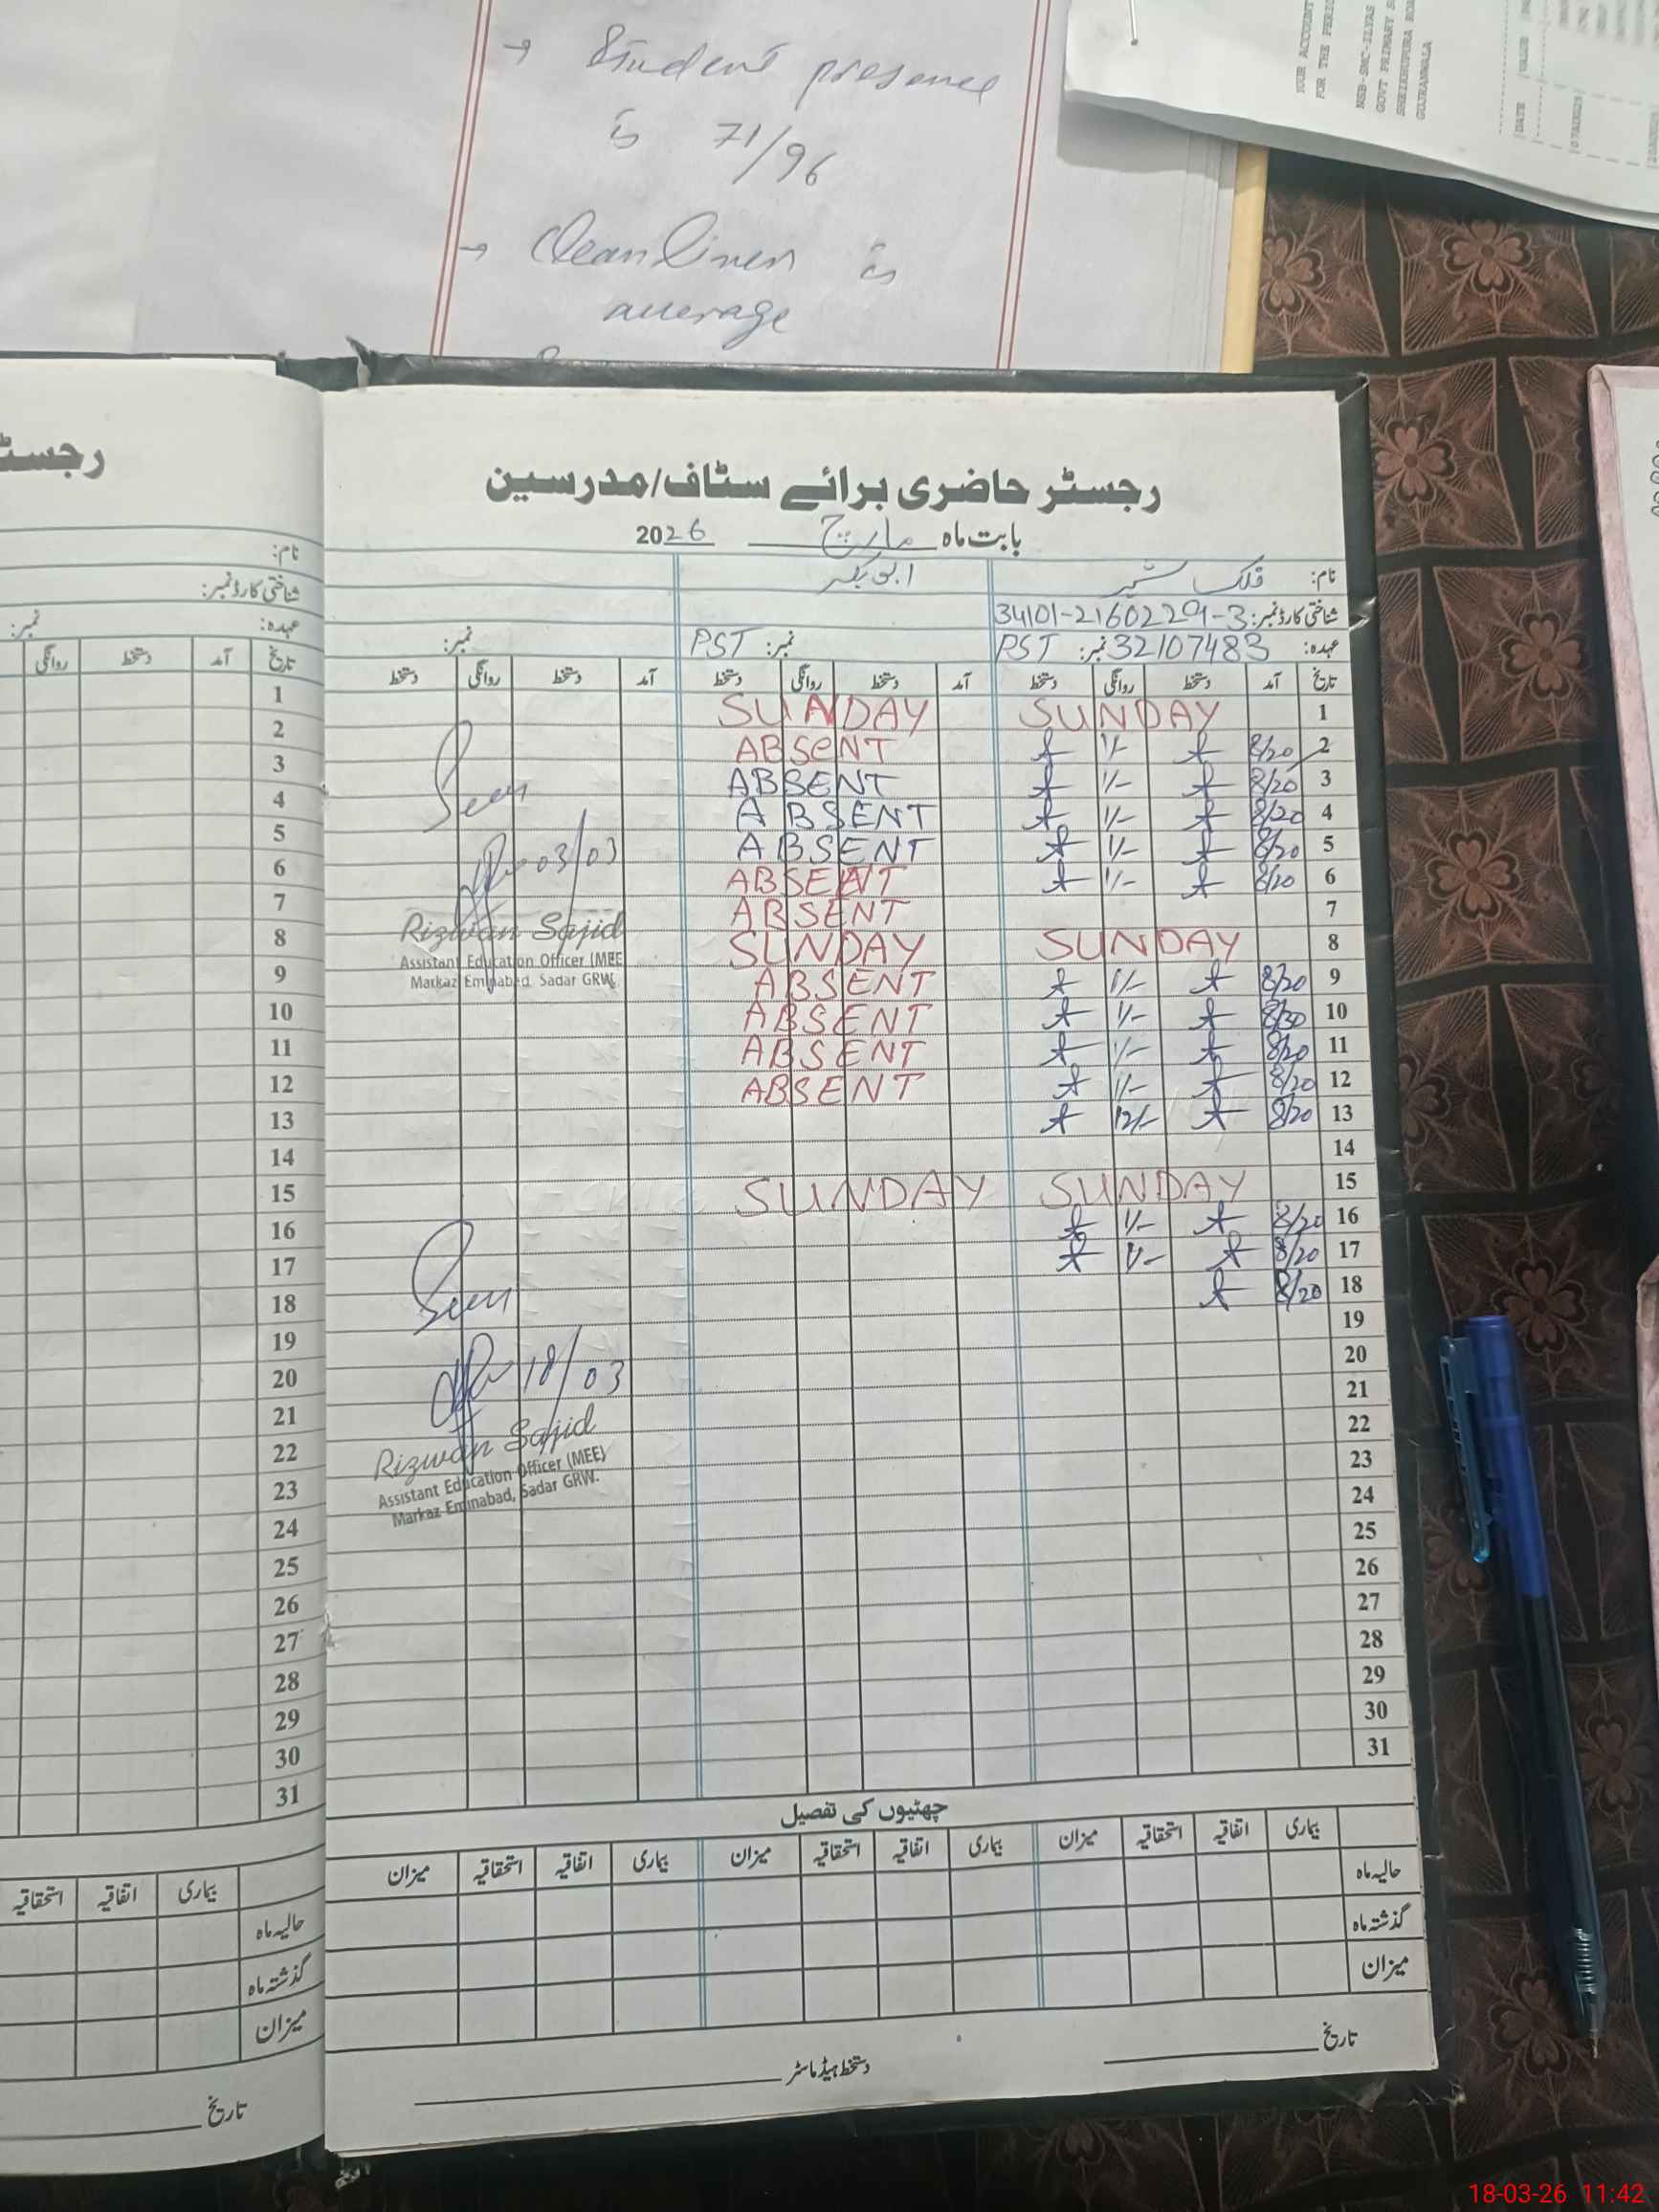 → Student presence
is 71/96
→ Cleanliness is
average
YOUR ACCOUNT
FOR THE PERIOD
NSB-SMC-ILYAS
GOVT PRIMARY
SHEIKHUPURA ROAD
GUJRANWALA
DATE
VALUE
رجسٹر حاضری برائے سٹاف/مدرسین
بابت ماہ مارچ 2026
نام: فلک شیر ابوبکر
شناختی کارڈ نمبر: 34101-2160229-3
عہدہ: PST نمبر: 32107483 PST نمبر: نمبر:
تاریخ آمد دستخط روانگی دستخط آمد دستخط روانگی دستخط آمد دستخط روانگی دستخط
1 SUNDAY SUNDAY
2 8/20 1/- ABSENT
3 8/20 1/- ABSENT
4 8/20 1/- ABSENT
5 8/20 1/- ABSENT
6 8/20 1/- ABSENT
7 ABSENT
8 SUNDAY SUNDAY
9 8/20 1/- ABSENT
10 8/30 1/- ABSENT
11 8/20 1/- ABSENT
12 8/20 1/- ABSENT
13 8/20 12/-
14
15 SUNDAY SUNDAY
16 8/20 1/-
17 8/20 1/-
18 8/20
19
20
21
22
23
24
25
26
27
28
29
30
31
Seen
03/03
Rizwan Sajid
Assistant Education Officer (MEE
Markaz Eminabad, Sadar GRW.
Seen
18/03
Rizwan Sajid
Assistant Education Officer (MEE)
Markaz Eminabad, Sadar GRW.
چھٹیوں کی تفصیل
بیماری اتفاقیہ استحقاقیہ میزان بیماری اتفاقیہ استحقاقیہ میزان بیماری اتفاقیہ استحقاقیہ میزان
حالیہ ماہ
گذشتہ ماہ
میزان
تاریخ
دستخط ہیڈ ماسٹر
نام:
شناختی کارڈ نمبر:
عہدہ: نمبر:
تاریخ آمد دستخط روانگی
1
2
3
4
5
6
7
8
9
10
11
12
13
14
15
16
17
18
19
20
21
22
23
24
25
26
27
28
29
30
31
بیماری اتفاقیہ استحقاقیہ
حالیہ ماہ
گذشتہ ماہ
میزان
تاریخ
18-03-26 11:42